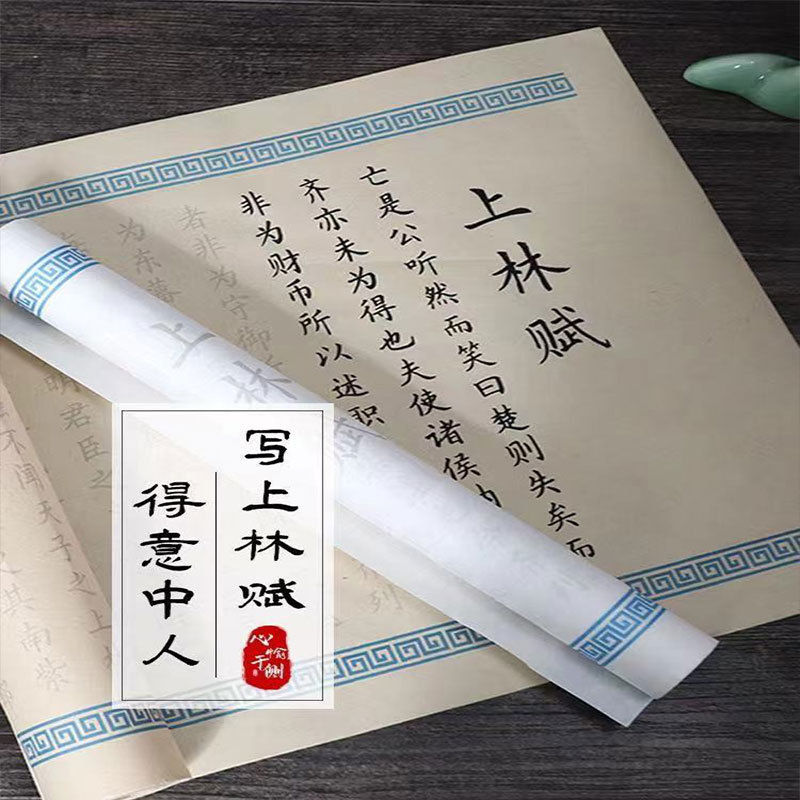 上林赋
亡是公听然而笑曰楚则失矣而
齐亦未为得也夫使诸侯
非为财币所以述职
者非为守御
为东藩
明君臣之
不闻天子之上
其南紫
列
上林赋
写上林赋
得意中人
心愉于侧